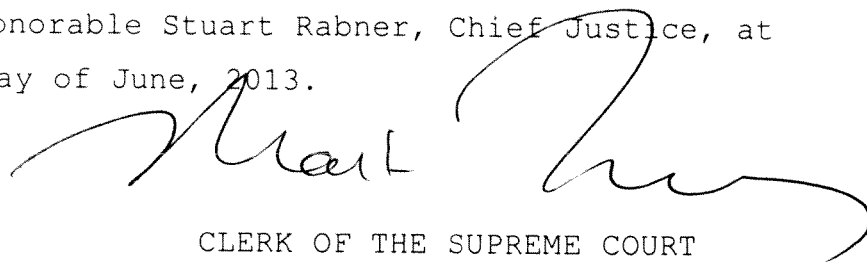 onorable Stuart Rabner, Chief Justice, at
ay of June, 2013.
Mark
CLERK OF THE SUPREME COURT